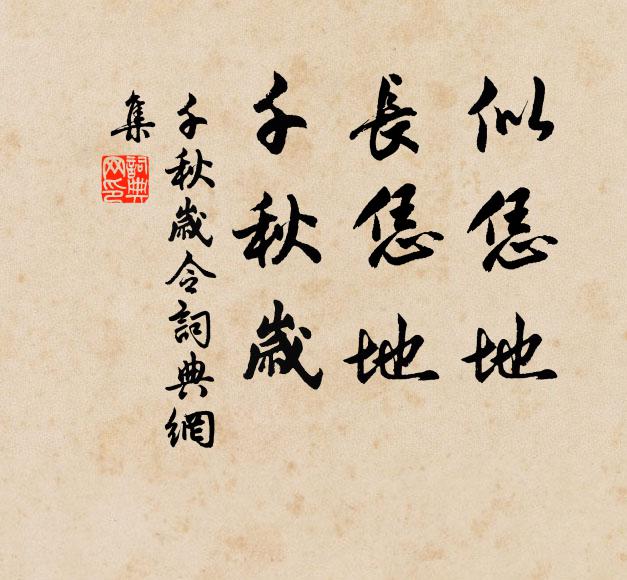 似恁地
長恁地
千秋歲
千秋歲令詞典網
集
詞典
网印